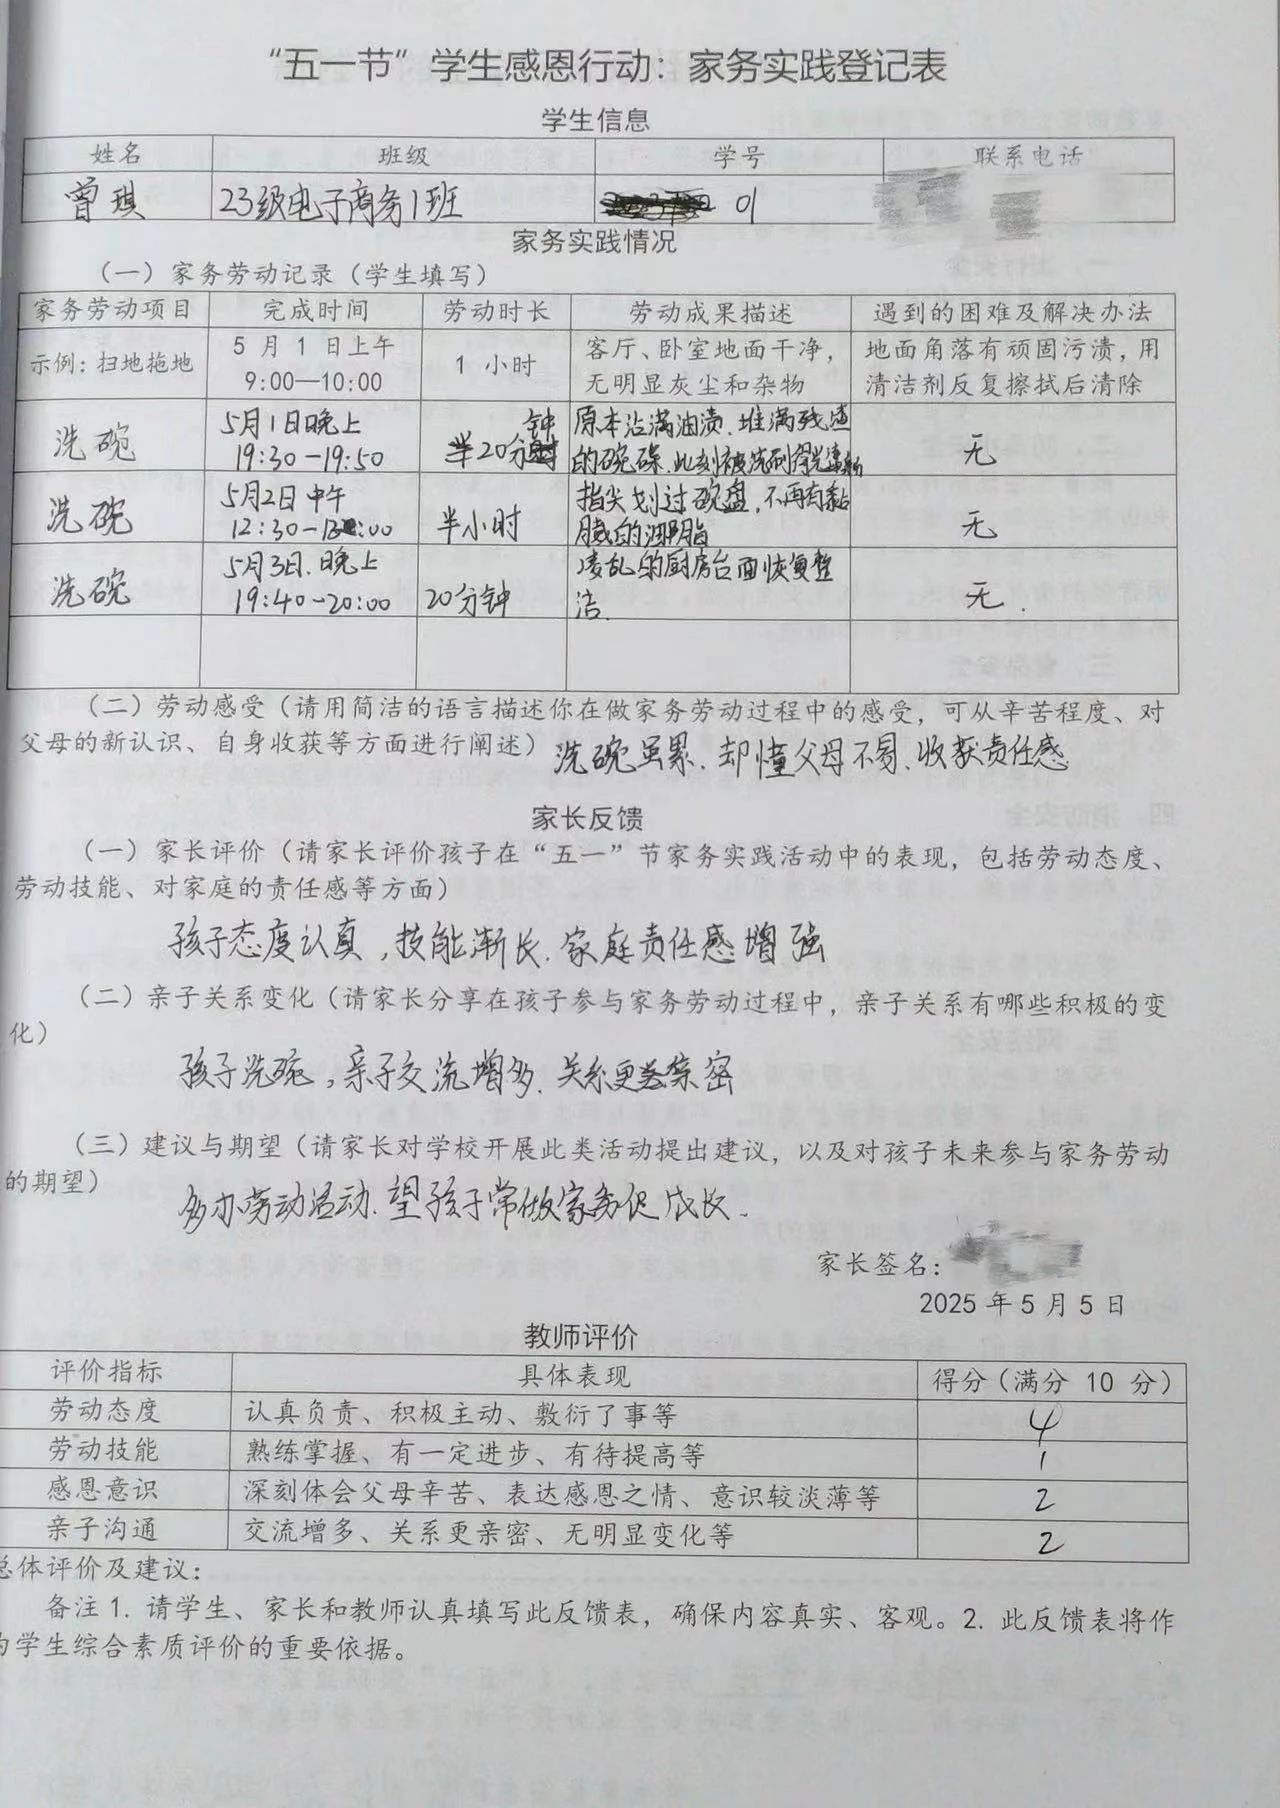 “五一节”学生感恩行动：家务实践登记表
学生信息
姓名 班级 学号 联系电话
曾琪 23级电子商务1班 01
家务实践情况
（一）家务劳动记录（学生填写）
家务劳动项目 完成时间 劳动时长 劳动成果描述 遇到的困难及解决办法
示例：扫地拖地 5 月 1 日上午 9:00—10:00 1 小时 客厅、卧室地面干净，无明显灰尘和杂物 地面角落有顽固污渍，用清洁剂反复擦拭后清除
洗碗 5月1日晚上 19:30-19:50 20分钟 原本沾满油渍、堆满残渣的碗碟、此刻被洗刷得光洁 无
洗碗 5月2日中午 12:30-13:00 半小时 指尖划过碗盘，不再有黏腻的油脂 无
洗碗 5月3日.晚上 19:40-20:00 20分钟 凌乱的厨房台面恢复整洁. 无.
（二）劳动感受（请用简洁的语言描述你在做家务劳动过程中的感受，可从辛苦程度、对
父母的新认识、自身收获等方面进行阐述）洗碗虽累、却懂父母不易、收获责任感
家长反馈
（一）家长评价（请家长评价孩子在“五一”节家务实践活动中的表现，包括劳动态度、
劳动技能、对家庭的责任感等方面）
孩子态度认真，技能渐长、家庭责任感增强
（二）亲子关系变化（请家长分享在孩子参与家务劳动过程中，亲子关系有哪些积极的变
化）
孩子洗碗，亲子交流增多、关系更亲密
（三）建议与期望（请家长对学校开展此类活动提出建议，以及对孩子未来参与家务劳动
的期望）
多办劳动活动、望孩子常做家务促成长.
家长签名：
2025 年 5 月 5 日
教师评价
评价指标 具体表现 得分（满分 10 分）
劳动态度 认真负责、积极主动、敷衍了事等 4
劳动技能 熟练掌握、有一定进步、有待提高等 1
感恩意识 深刻体会父母辛苦、表达感恩之情、意识较淡薄等 2
亲子沟通 交流增多、关系更亲密、无明显变化等 2
总体评价及建议：
备注 1. 请学生、家长和教师认真填写此反馈表，确保内容真实、客观。2. 此反馈表将作
为学生综合素质评价的重要依据。